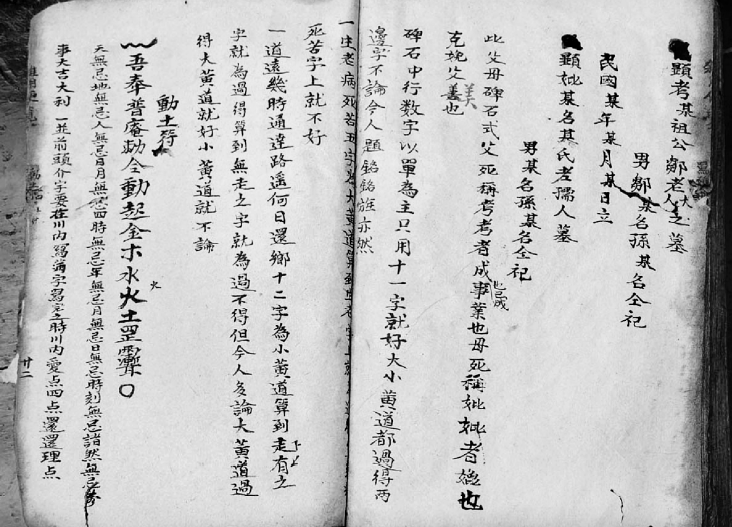 顯考某祖公鄒老大人之墓
男鄒某名孫某名仝祀
民國某年某月某日立
顯妣某名某氏老孺人墓
男某名孫某名仝祀
此父母碑石式父死稱考考者成事業也母死稱妣妣者媲也
已成
克妣父美
善也
碑石中行数字以單為主只用十一字就好大小黄道都過得两
邊字不論今人題銘銘旌亦然
一生老病死苦五字為大黄道算到
死苦字上就不好
一道遠幾時通達路遥何日還鄉十二字為小黄道算到走有之
字就為過得算到無走之字就為過不得但今人多論大黄道過
得大黄道就好小黄道就不論
動土符
吾奉普庵勅令動起金木水火土罡
火
天無忌地無忌人無忌月無忌四時無忌年無忌月無忌日無忌時刻無忌諸煞無忌
事大吉大利 一並前頭介字要在川内寫符字寫完時川内愛点四点還還理点
廿二